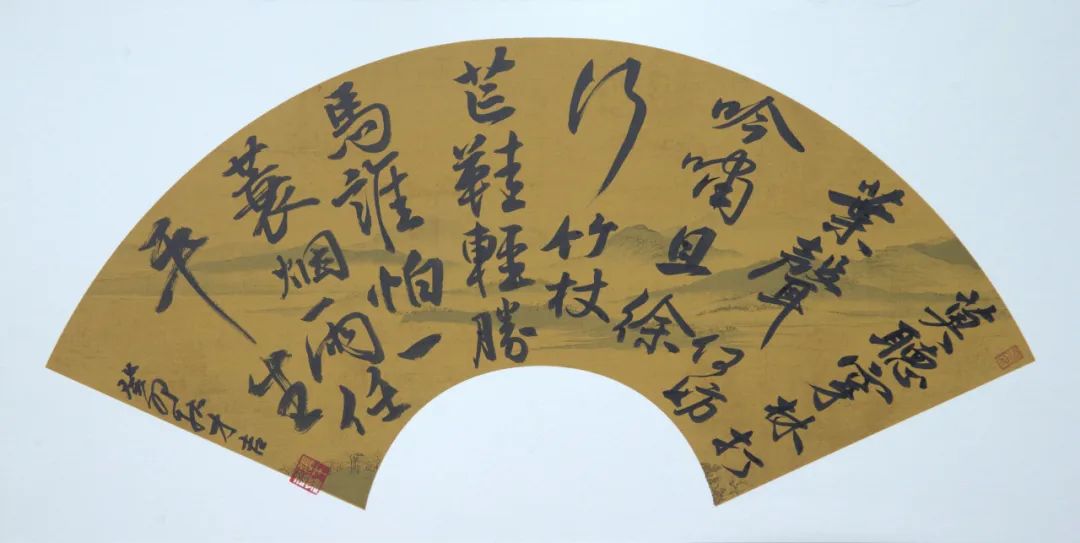 莫聽穿林打
葉聲何妨
吟嘯且徐
行竹杖
芒鞋輕勝
馬誰怕一
蓑烟雨任
平生